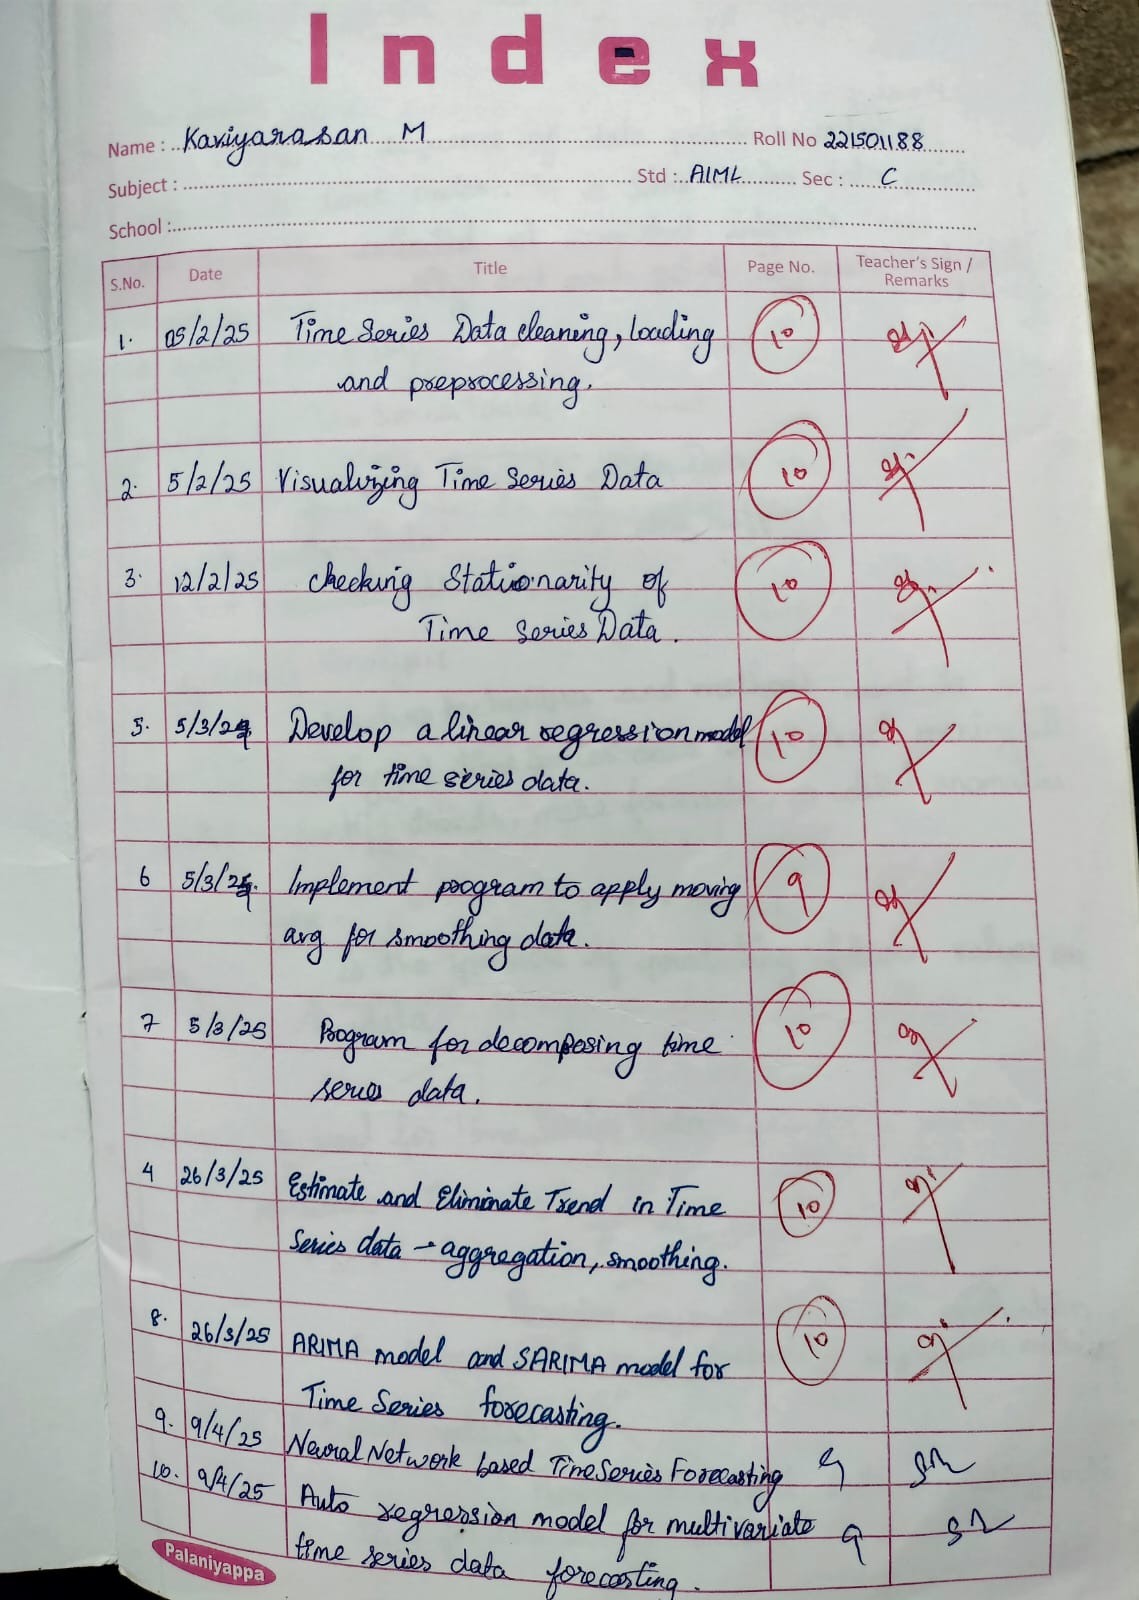 Index
Name : Kaviyarasan M Roll No 221501188
Subject : Std : AIML Sec : C
School :
S.No. Date Title Page No. Teacher's Sign / Remarks
1. 05/2/25 Time Series Data cleaning, loading 10
and preprocessing.
2. 5/2/25 Visualizing Time Series Data 10
3. 12/2/25 checking Stationarity of 10
Time Series Data.
5. 5/3/25 Develop a linear regression model 10
for time series data.
6 5/3/25. Implement program to apply moving 9
avg for smoothing data.
7 5/3/25 Program for decomposing time 10
series data.
4 26/3/25 Estimate and Eliminate Trend in Time 10
Series data - aggregation, smoothing.
8. 26/3/25 ARIMA model and SARIMA model for 10
Time Series forecasting.
9. 9/4/25 Neural Network based Time Series Forecasting 9
10. 9/4/25 Auto regression model for multivariate 9
time series data forecasting.
Palaniyappa